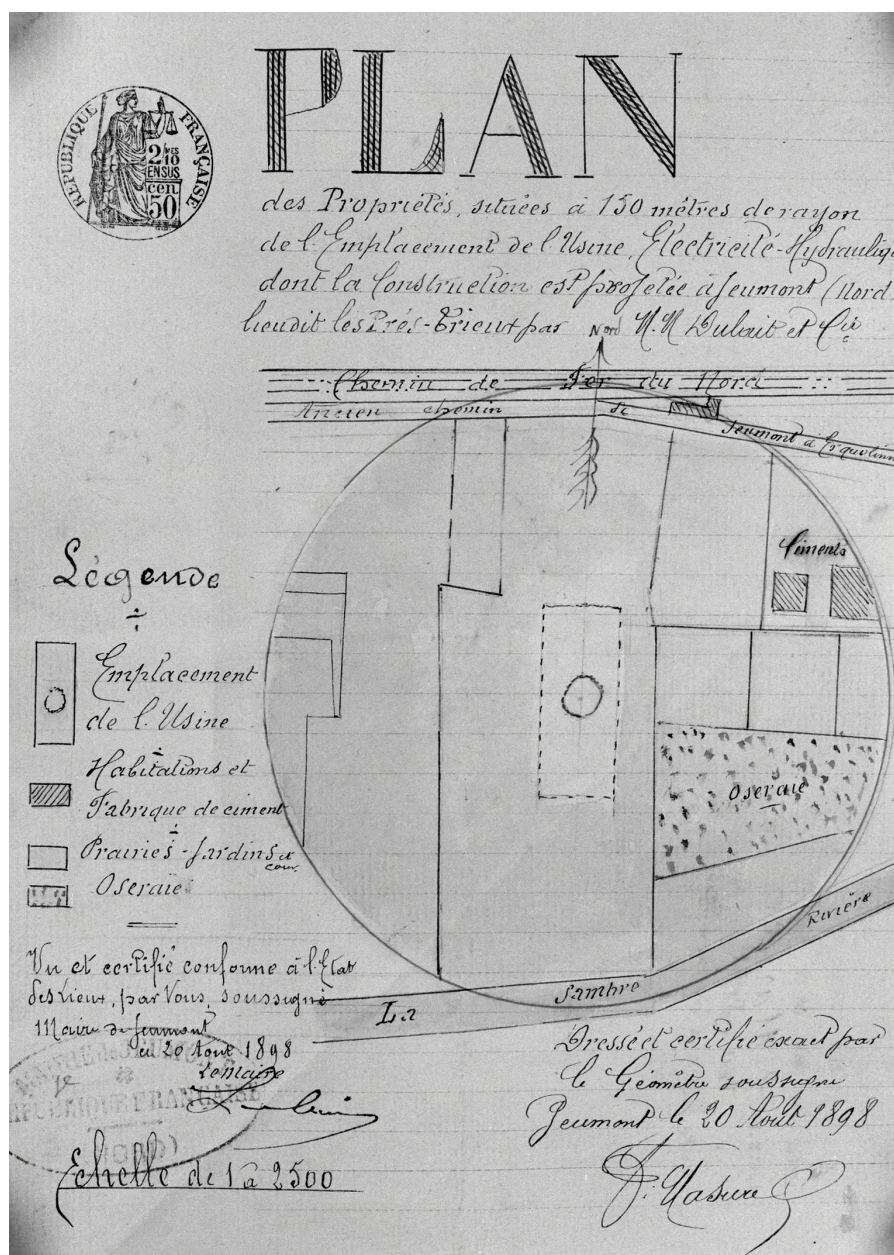 PLAN
RÉPUBLIQUE FRANÇAISE
2/10 MES
EN SUS
cen
50
des Propriétés, situées à 150 mètres de rayon
de l'Emplacement de l'Usine, Électricité-Hydraulique
dont la Construction est projetée à Jeumont (Nord
lieudit les Prés-Trieux par M.M Dulait et Cie
Nord
Chemin de Fer du Nord
Ancien chemin de Jeumont à Erquelinn
Ciments
Légende
Emplacement
de l'Usine
Habitations et
Fabrique de ciment
Prairies-Jardins et
cour
Oseraie
Oseraie
Rivière
La Sambre
Vu et certifié conforme à l'État
des Lieux, par Nous, soussigné
Maire de Jeumont
20 Août 1898
Le Maire
MAIRIE DE JEUMONT
RÉPUBLIQUE FRANÇAISE
(NORD)
Echelle de 1 à 2500
Dressé et certifié exact par
le Géomètre soussigné
Jeumont le 20 Août 1898